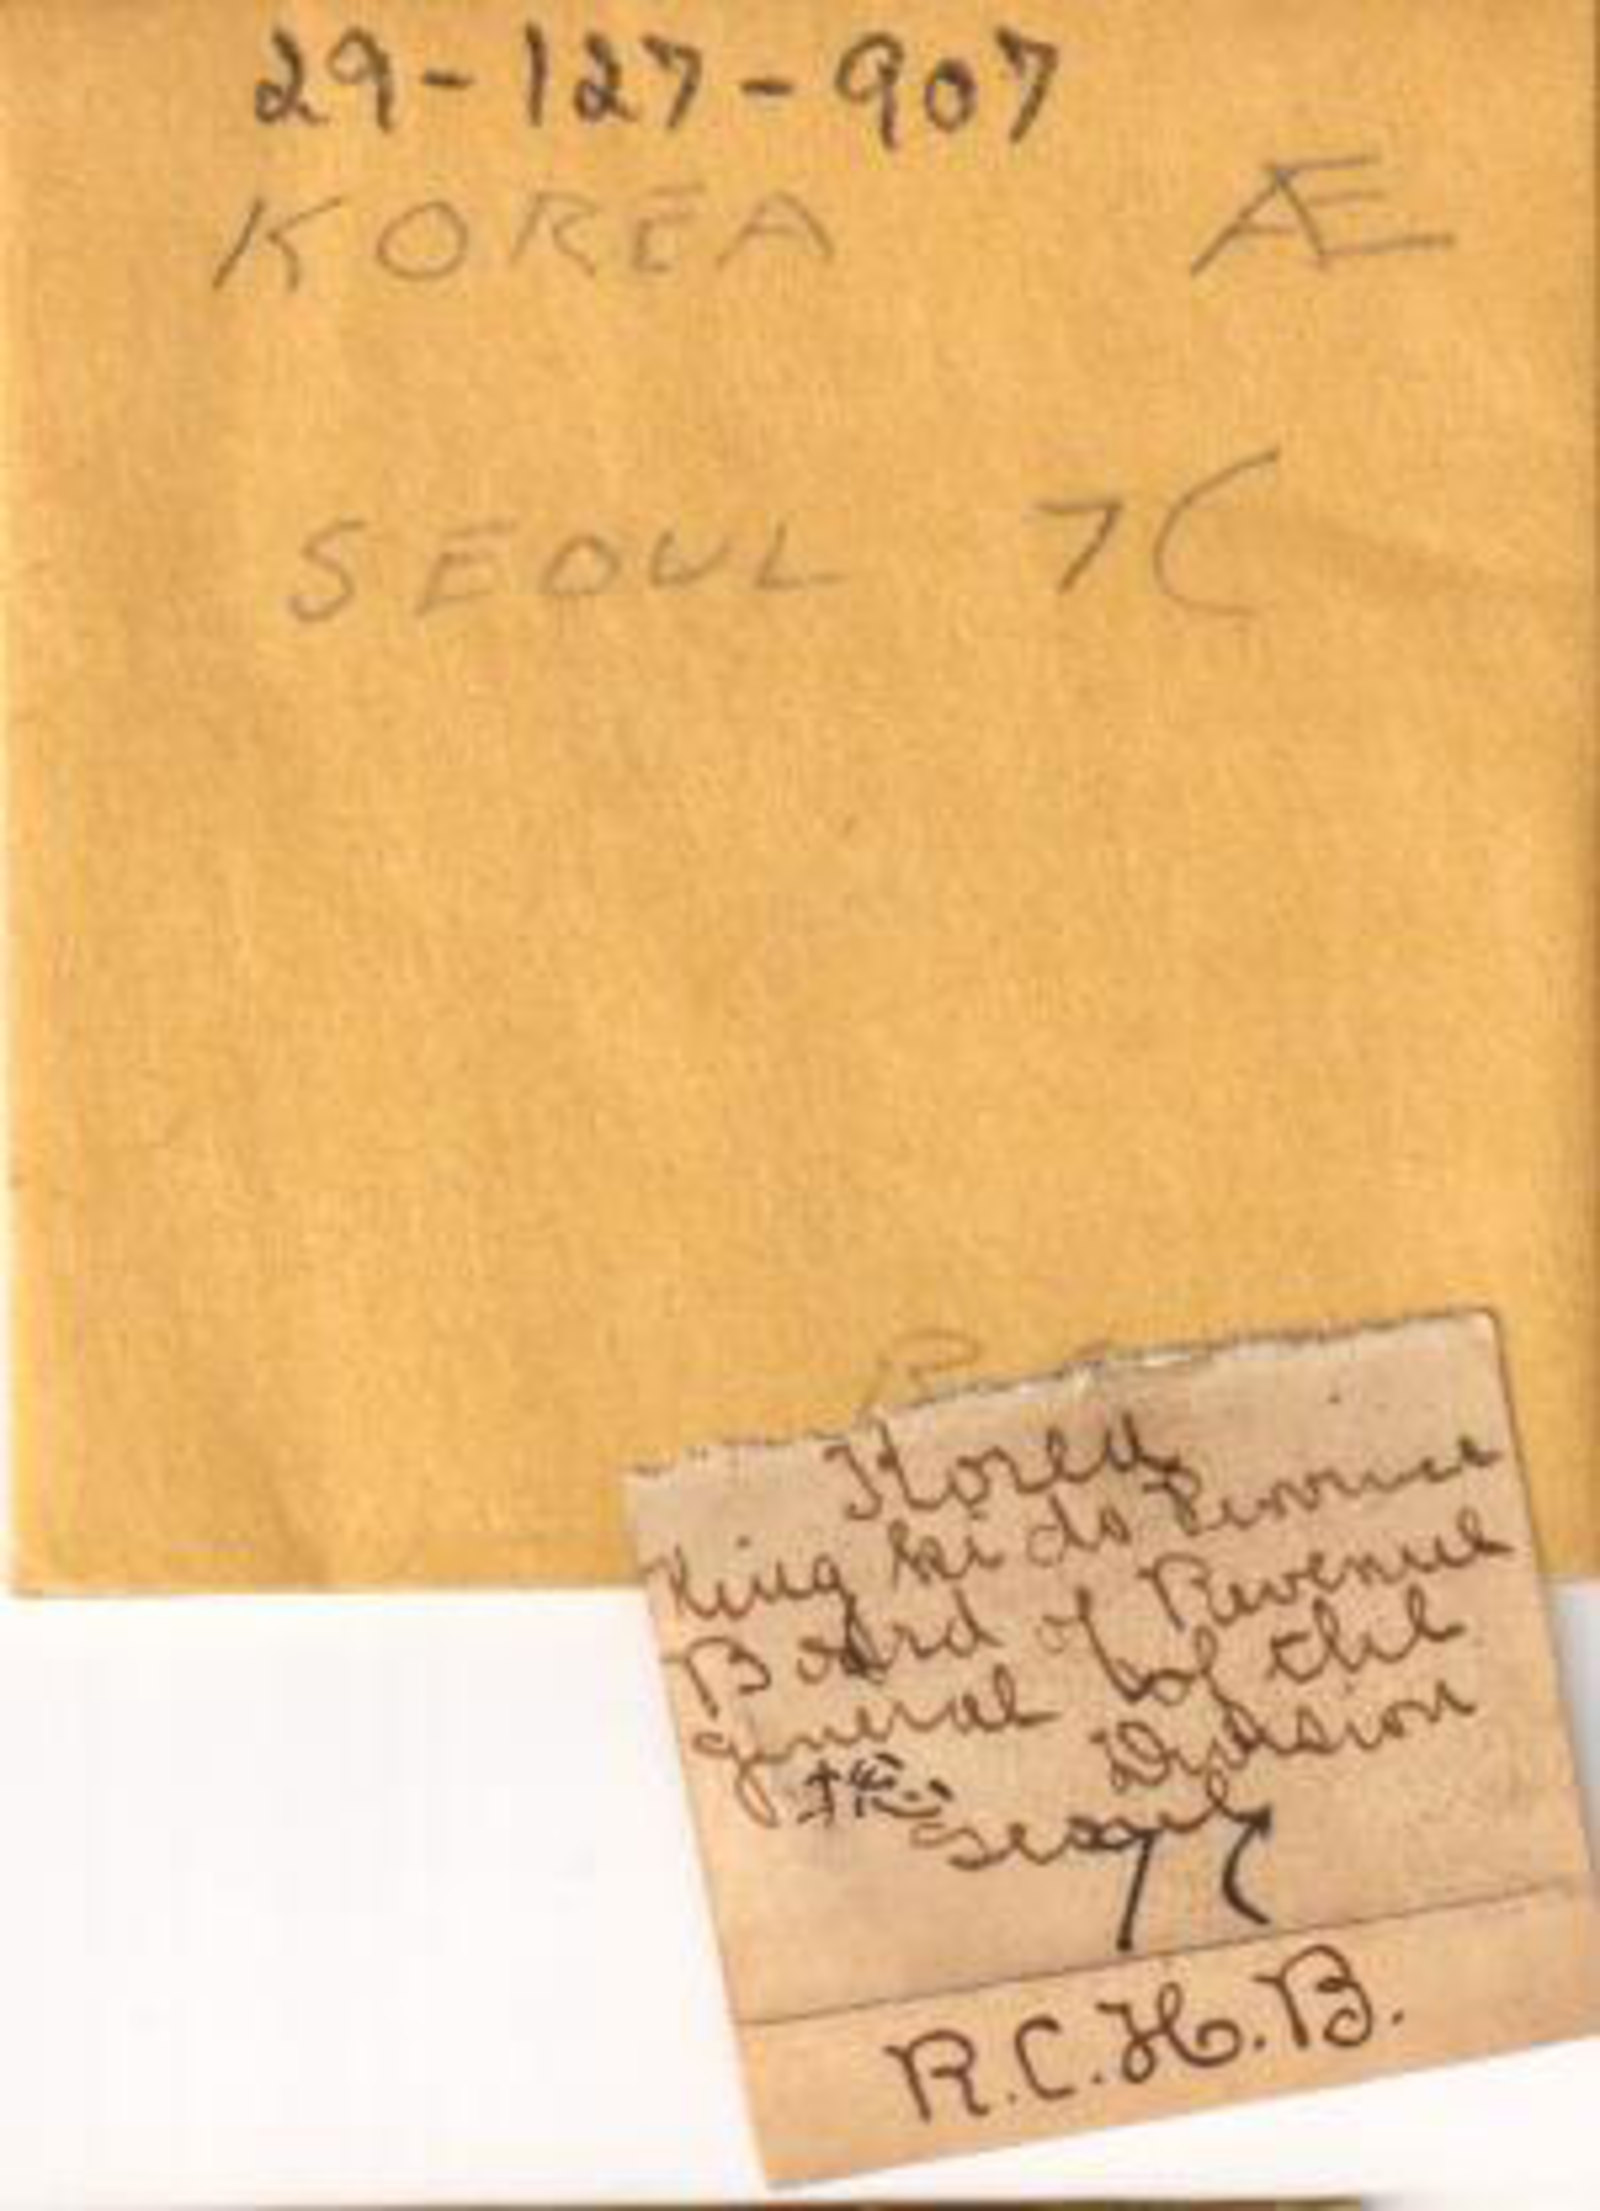 29-127-907
KOREA Æ
SEOUL 7(
R
Korea
King ki do Province
Board of Revenue
general of the
Division
揔
Seoul
R.C.H.B.